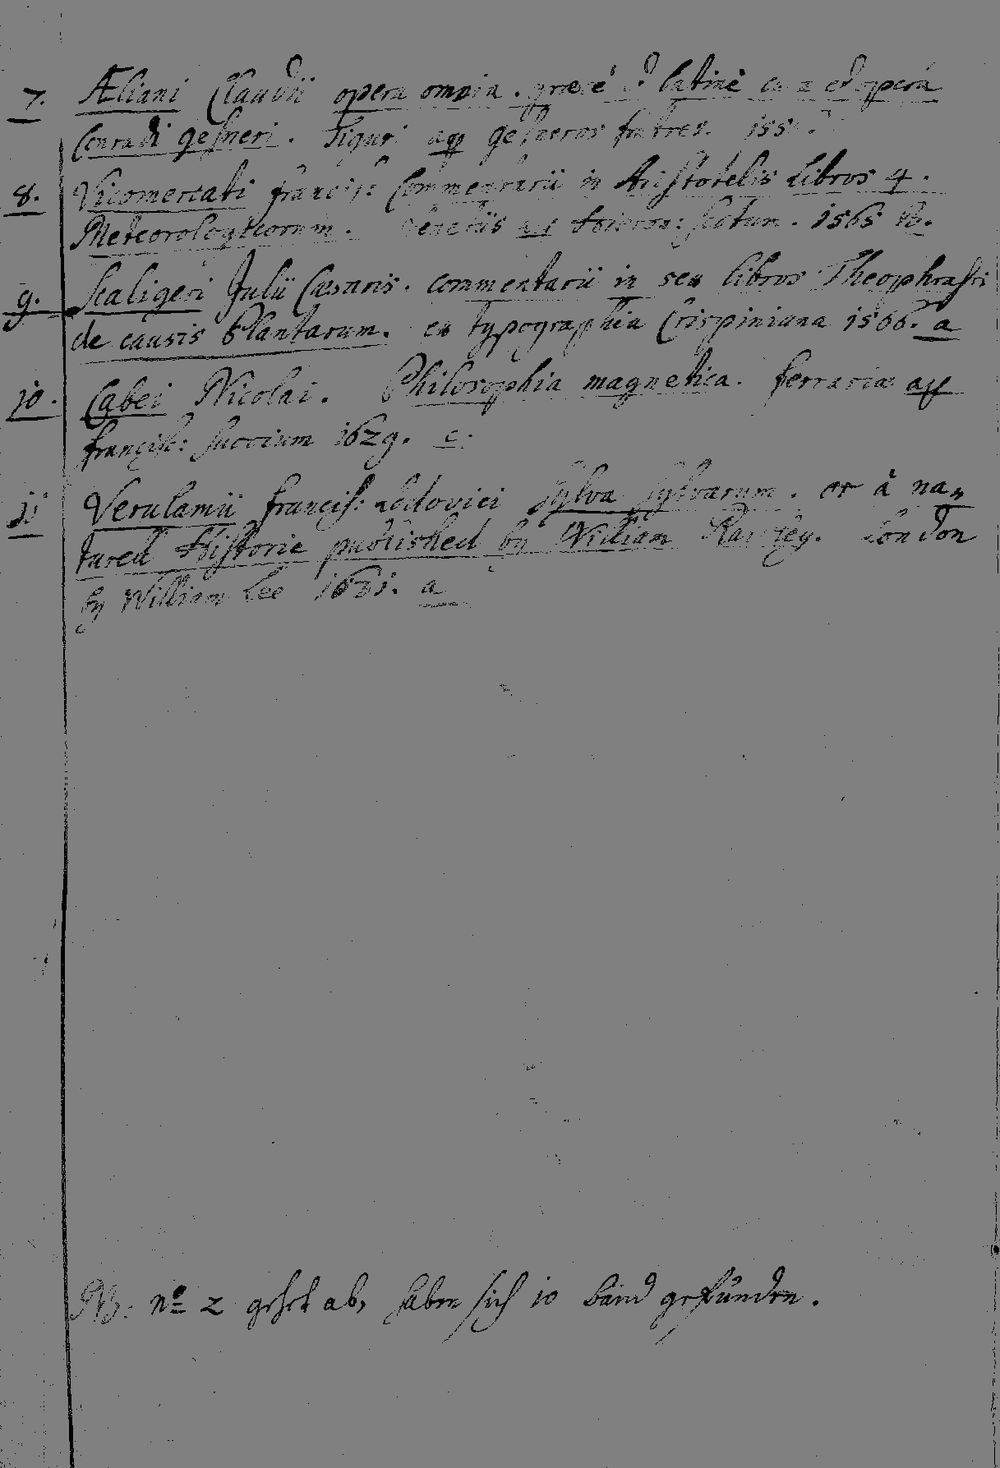 7. Æliani Claudii opera omnia. græcè & latinè cura et opera
Conradi Gesneri. Tiguri apud Gesneros fratres. 155
8. Vicomercati francis: Commentarii in Aristotelis Libros 4.
Meteorologicorum. Venetiis Hieron: Scotum. 1565 B.
9. Scaligeri Julii Cæsaris. commentarii in sex libros Theophrasti
de causis Plantarum. ex typographia Crispiniana 1566. a
10. Cabei Nicolai. Philosophia magnetica. ferrariæ
francisc: Succium 1629. c.
11 Verulamii francis: Ludovici Sylva Sylvarum. or à na„
turall Historie published by William Rawley. London
by William Lee 1631. a
NB: no 2 gehet ab, haben sich 10 band gefunden.